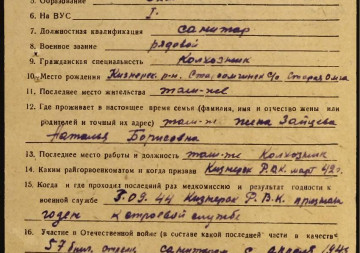 5. Образование
6. На ВУС I.
7. Должностная квалификация санитар
8. Военное звание рядовой
9. Гражданская специальность Колхозник
10. Место рождения Кизнерск. р-н. Старая Омга
11. Последнее место жительства там-же
12. Где проживает в настоящее время семья (фамилия, имя и отчество жены или
родителей и точный их адрес) там-же жена Зайцева
Наталья Борисовна
13. Последнее место работы и должность там-же Колхозник
14. Каким райгорвоенкоматом и когда призван Кизнерск РВК. март 42 г.
15. Когда и где проходил последний раз медкомиссию и результат годности к
военной службе 5.09.44 Кизнерск Р.В.К. признан
годен к строевой службе
16. Участие в Отечественной войне (в составе какой последней части в качестве
57 санитаром с апреля